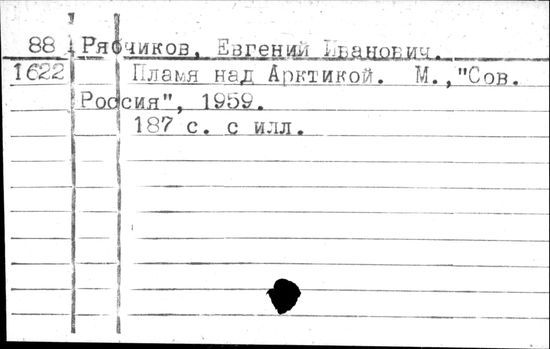 88 Рябчиков, Евгений Иванович.
1622 Пламя над Арктикой. М.,"Сов.
Россия", 1959.
187 с. с илл.